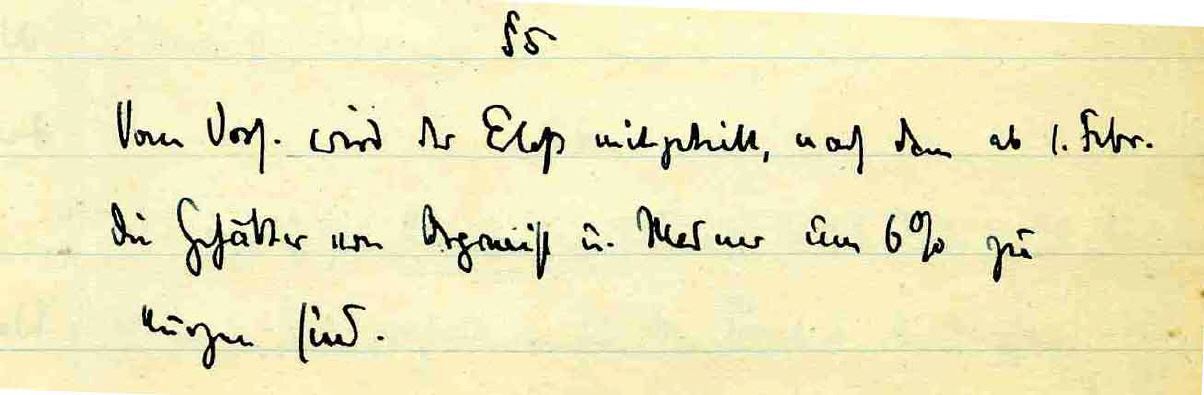 §5
Vom Vors. wird der Erlaß mitgeteilt, nach dem ab 1. Febr.
die Gehälter von Organist u. Mesner um 6% zu
kürzen sind.